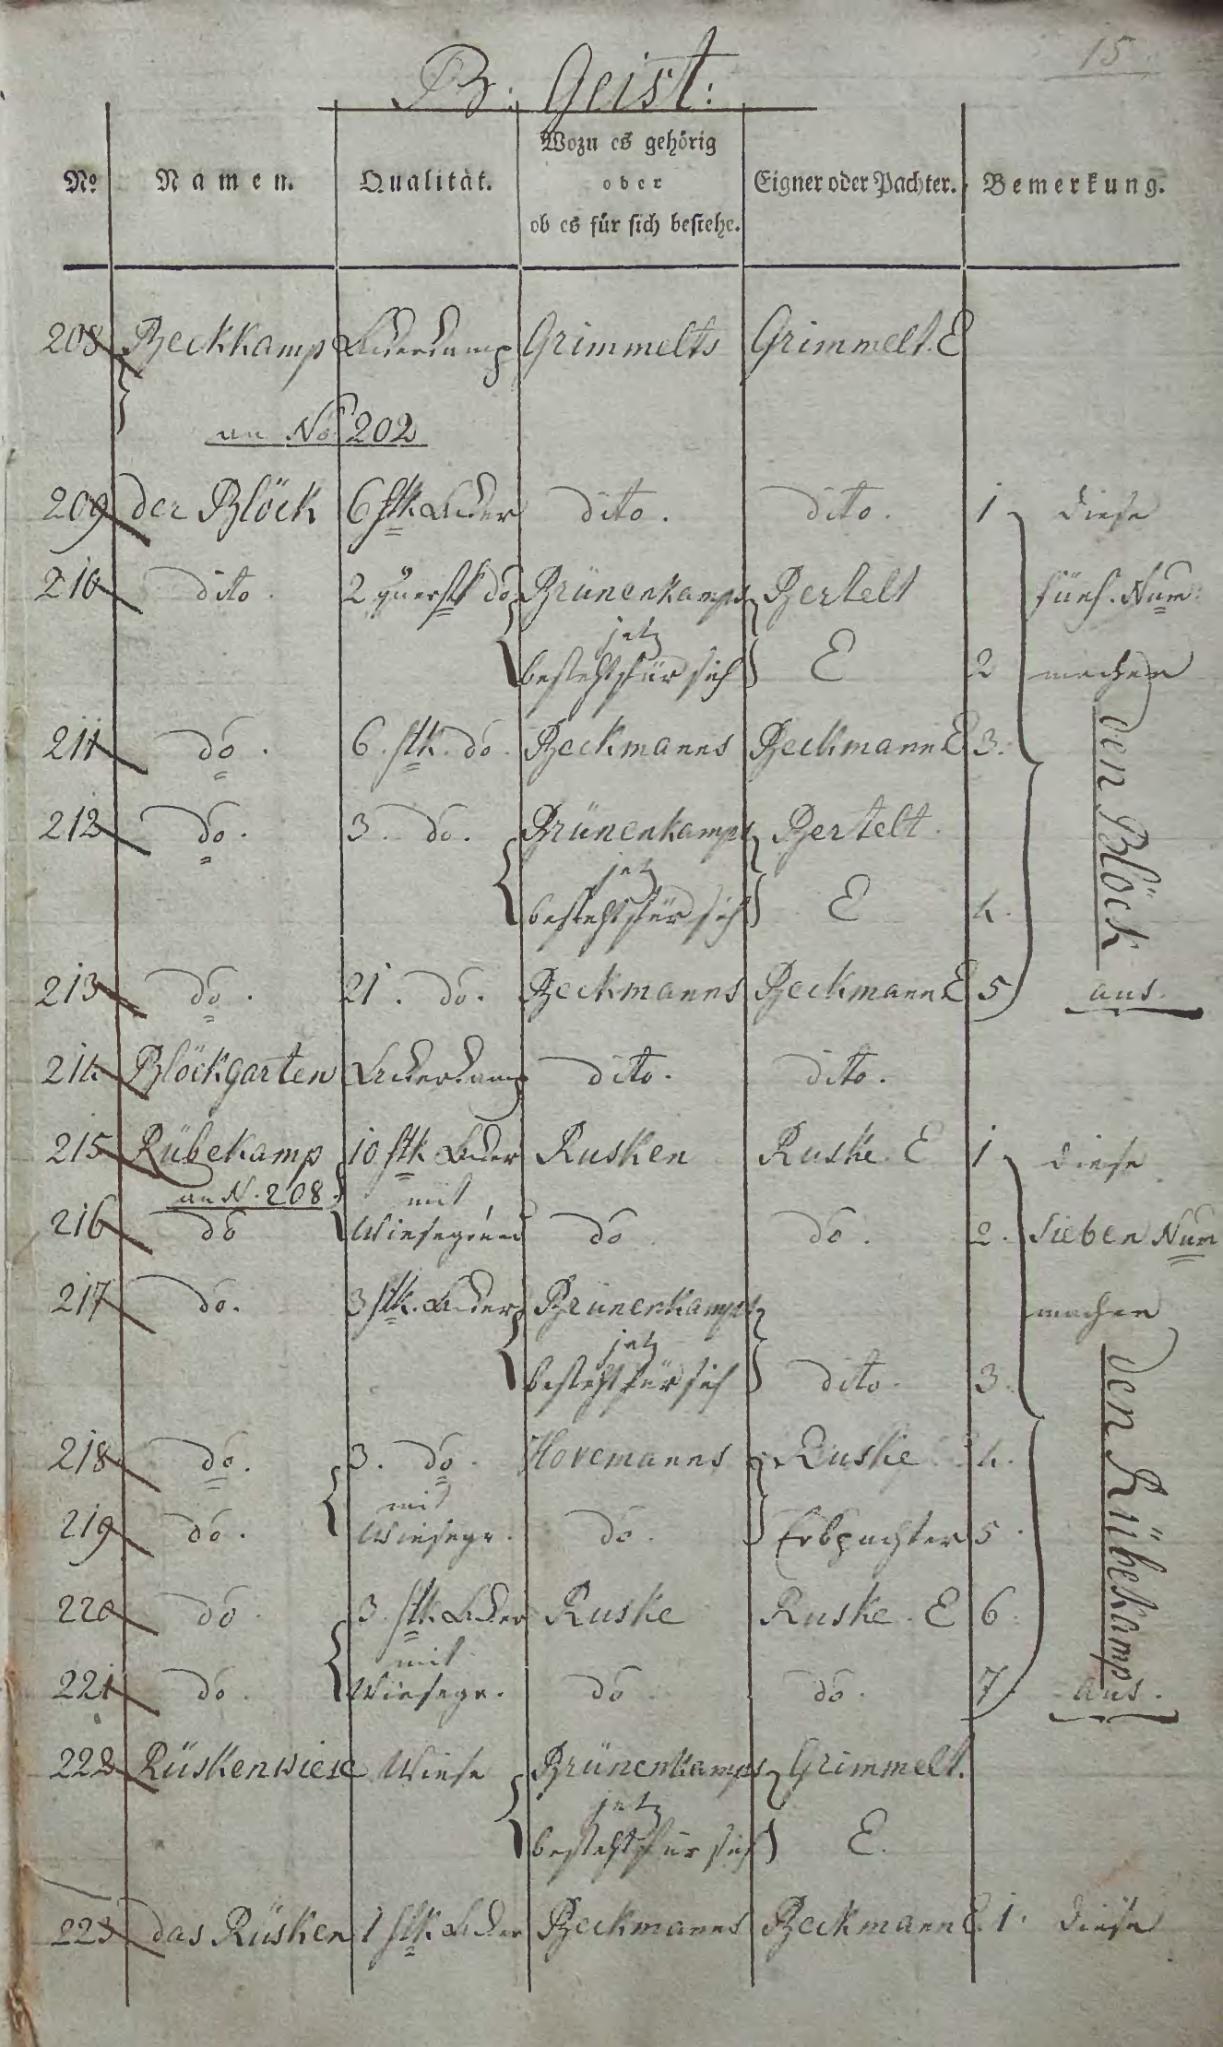 15.
B: Geist:
No Namen. Qualität. Wozu es gehörig oder ob es für sich bestehe. Eigner oder Pachter. Bemerkung.
208 Beckkamp Ackerkamp Grimmelts Grimmelt. E
an No 202
209 der Blöck 6 stk Acker dito. dito. 1 diese
210 dito. 2 querstk do Brünenkamps Bertelt fünf. Num:
jetz
besteht für sich E 2 machen
211 do. 6. stk. do. Beckmanns Beckmann E 3. den Blöck
212 do. 3. do. Brünenkamps Bertelt.
jetz
besteht für sich E 4.
213 do. 21. do. Beckmanns Beckmann E 5 aus.
214 Blöckgarten Ackerkamp dito. dito.
215 Rübekamp 10 stk Acker Rusken Ruske. E 1 diese
an N. 208. mit
216 do Wiesegrund do do. 2. sieben Num
217 do. 3 stk. Acker Brünenkamps machen
jetz
besteht für sich dito. 3. den Rübekamp
218 do. 3. do. Hovemanns Ruske 4.
mit
219 do. Wiesegr. do. Erbpachter 5.
220 do 3. stk. Acker Ruske Ruske. E 6.
mit
221 do. Wiesegr. do do. 7. aus.
222 Rüskenwiese Wiese Brünenkamps Grimmelt.
jetz
besteht für sich E.
223 das Rüsken 1 stk. Acker Beckmanns Beckmann E. 1. diese